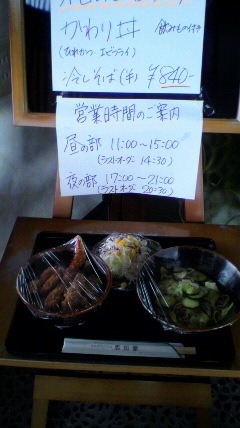 かわり丼 飲みもの付き
(ひれかつ エビフライ)
冷しそば(半) ¥840-
営業時間のご案内
昼の部 11:00~15:00
(ラストオーダー 14:30)
夜の部 17:00~21:00
(ラストオーダー 20:30)